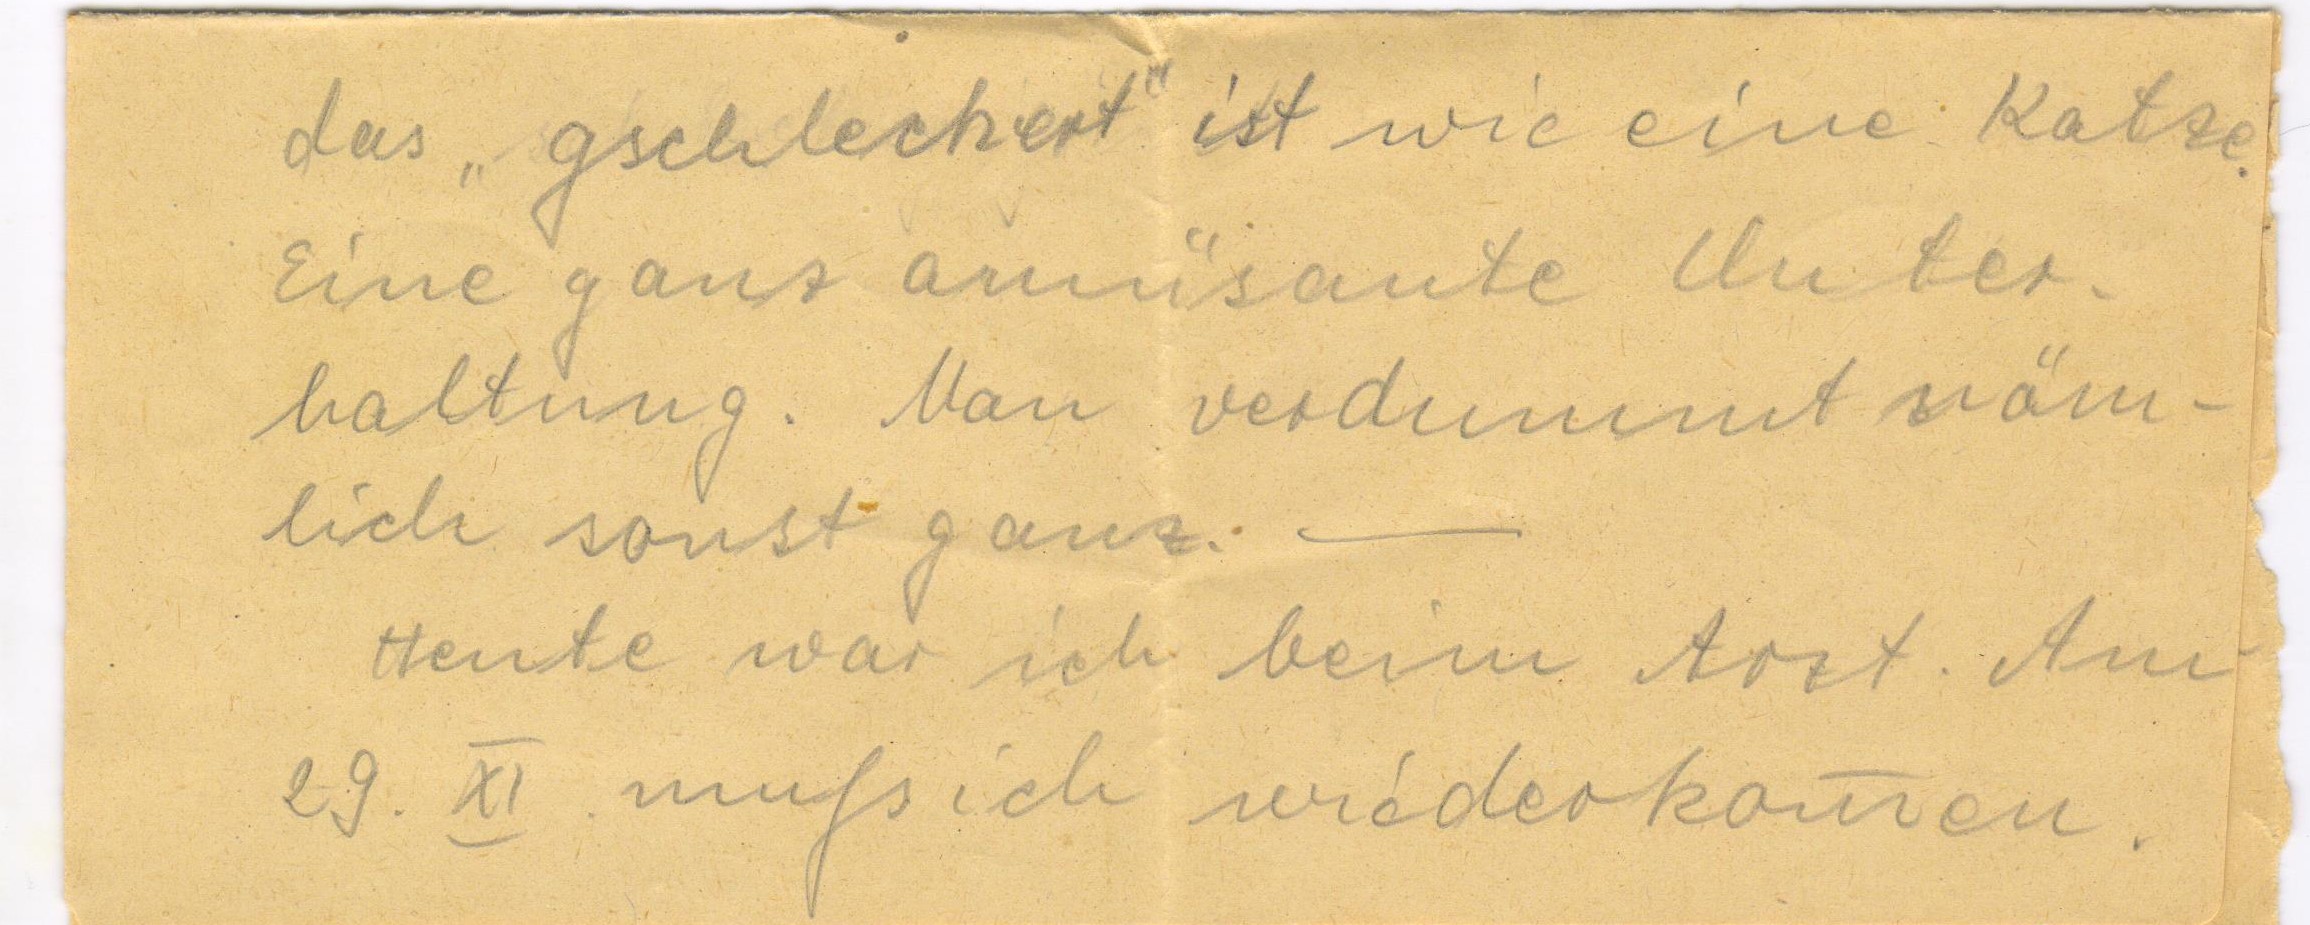 das „gschleckert" ist wie eine Katze.
Eine ganz amüsante Unter-
haltung. Man verdummt näm-
lich sonst ganz. —
Heute war ich beim Arzt. Am
29. XI. muſs ich wiederkom̅en.